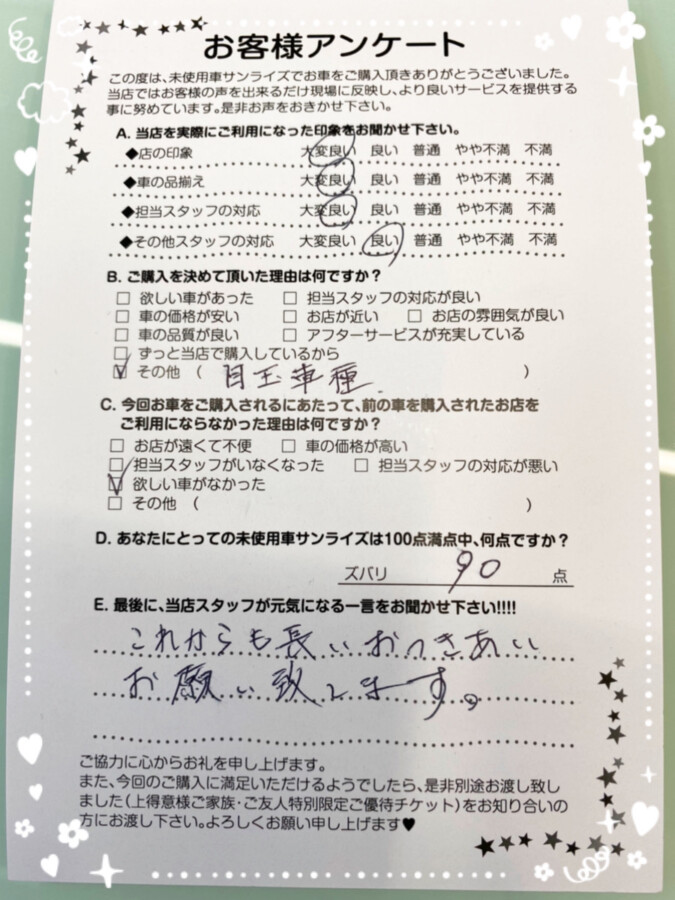 お客様アンケート
この度は、未使用車サンライズでお車をご購入頂きありがとうございました。
当店ではお客様の声を出来るだけ現場に反映し、より良いサービスを提供する
事に努めています。是非お声をおきかせ下さい。
A. 当店を実際にご利用になった印象をお聞かせ下さい。
◆店の印象 大変良い 良い 普通 やや不満 不満
◆車の品揃え 大変良い 良い 普通 やや不満 不満
◆担当スタッフの対応 大変良い 良い 普通 やや不満 不満
◆その他スタッフの対応 大変良い 良い 普通 やや不満 不満
B. ご購入を決めて頂いた理由は何ですか?
□ 欲しい車があった □ 担当スタッフの対応が良い
□ 車の価格が安い □ お店が近い □ お店の雰囲気が良い
□ 車の品質が良い □ アフターサービスが充実している
□ ずっと当店で購入しているから
☑ その他 ( 目玉車種 )
C. 今回お車をご購入されるにあたって、前の車を購入されたお店を
ご利用にならなかった理由は何ですか?
□ お店が遠くて不便 □ 車の価格が高い
□ 担当スタッフがいなくなった □ 担当スタッフの対応が悪い
☑ 欲しい車がなかった
□ その他 ( )
D. あなたにとっての未使用車サンライズは100点満点中、何点ですか?
ズバリ 90 点
E. 最後に、当店スタッフが元気になる一言をお聞かせ下さい!!!!
これからも長いおつきあい
お願い致します。
ご協力に心からお礼を申し上げます。
また、今回のご購入に満足いただけるようでしたら、是非別途お渡し致し
ました(上得意様ご家族・ご友人特別限定ご優待チケット)をお知り合いの
方にお渡し下さい。よろしくお願い申し上げます♥